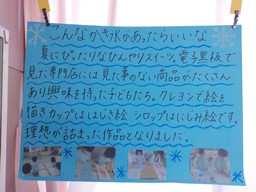 こんなかき氷があったらいいな
夏にぴったりなひんやりスイーツ。電子黒板で
見た専門店には見た事のない商品がたくさん
あり興味を持った子どもたち。クレヨンで絵を
描きカップははじき絵 シロップはにじみ絵です。
理想が詰まった作品となりました。